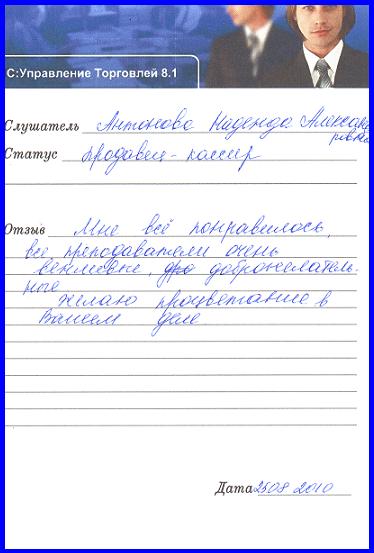 С:Управление Торговлей 8.1
Слушатель Антонова Надежда Александ
ровна
Статус продавец-кассир
Отзыв Мне всё понравилось,
все преподаватели очень
вежливые, доброжелатель-
ные
желаю процветание в
Вашем деле
Дата 25 08 2010